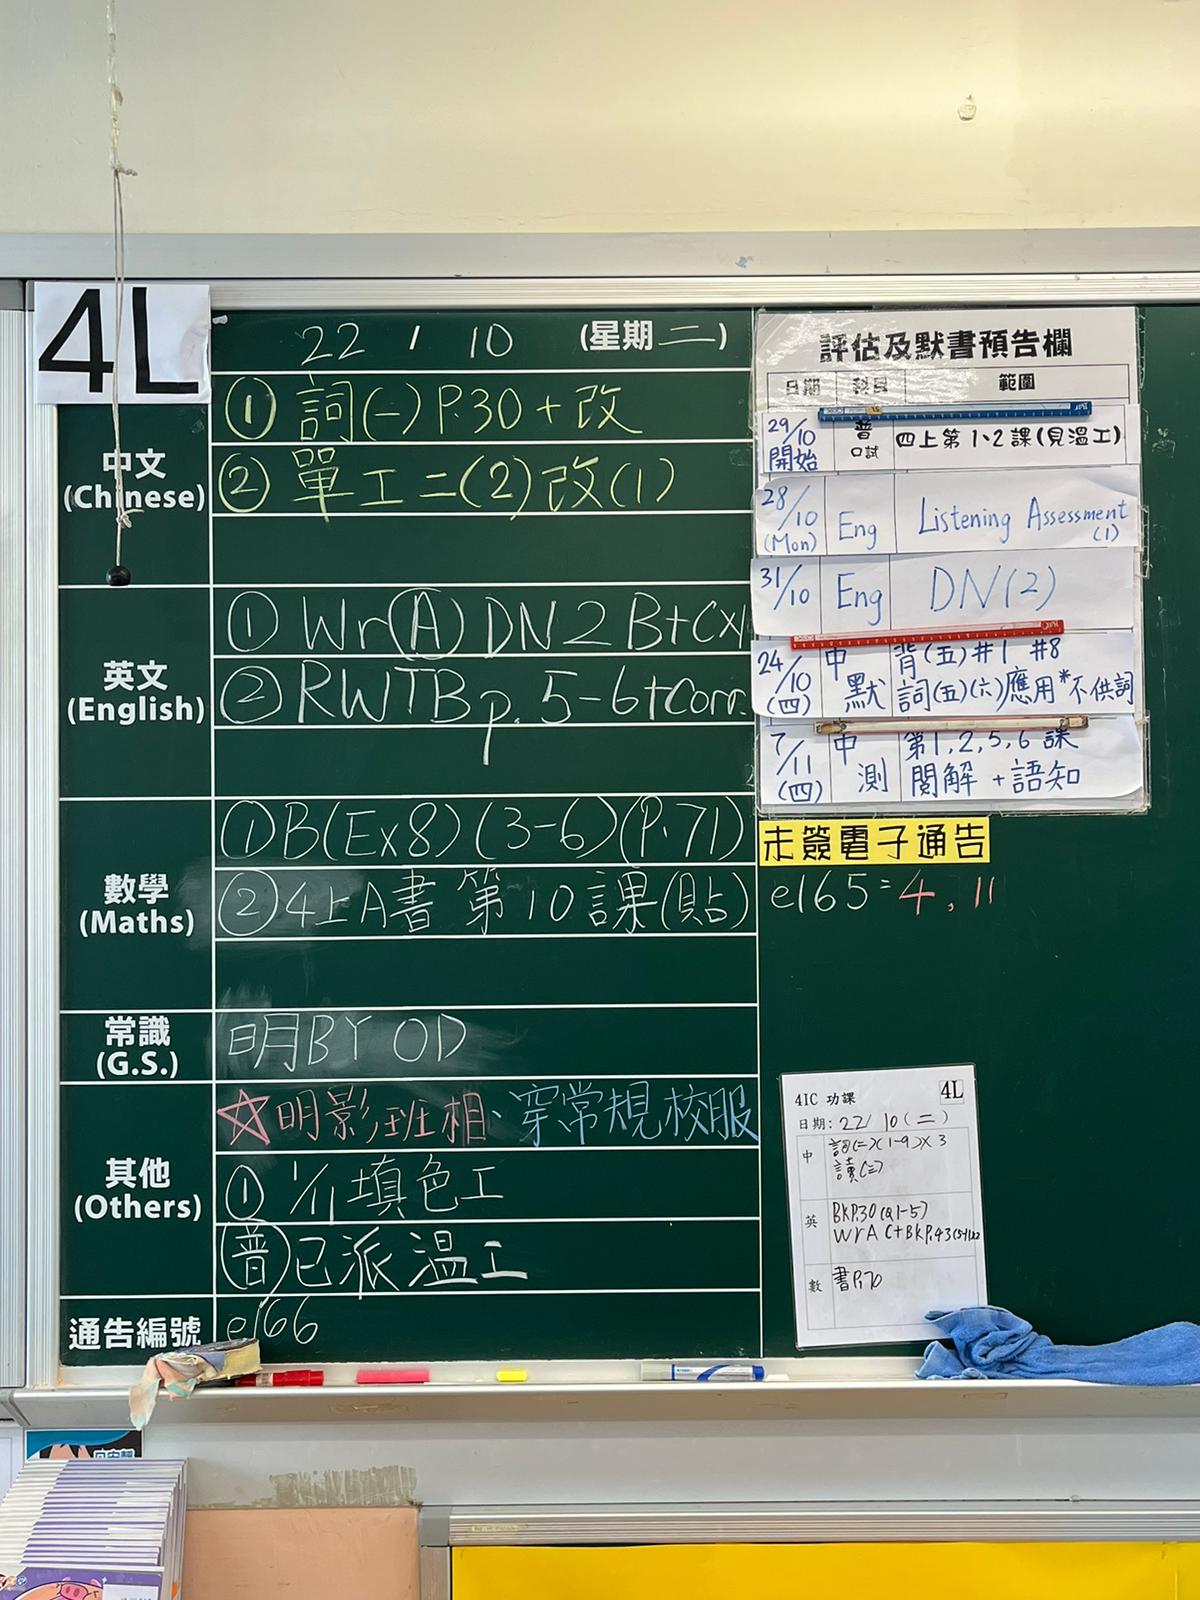 4L
22 / 10 (星期二)
中文
(Chinese)
① 詞(一) P.30 + 改
② 單工二(2)改(1)
英文
(English)
① Wr(A) DN 2 B+Cx1
② RWTB p. 5-6+Corr.
數學
(Maths)
① B(Ex8) (3-6) (P.71)
② 4上A書 第10課(貼)
常識
(G.S.)
明BYOD
其他
(Others)
☆明影班相、穿常規校服
① 1/11 填色工
(普)已派溫工
通告編號
e166
評估及默書預告欄
日期 科目 範圍
29/10 開始 普 口試 四上第1、2課(見溫工)
28/10 (Mon) Eng Listening Assessment (1)
31/10 Eng DN(2)
24/10 (四) 中默 背(五)#1 #8
詞(五)(六)應用*不供詞
7/11 (四) 中測 第1,2,5,6課
閱解+語知
未簽電子通告
e165=4,11
4IC 功課 4L
日期: 22/10(二)
中 詞(二)(1-9)X3
讀(二)
英 BKP.30(Q1-5)
WrA C+BKP.43
數 書P.70